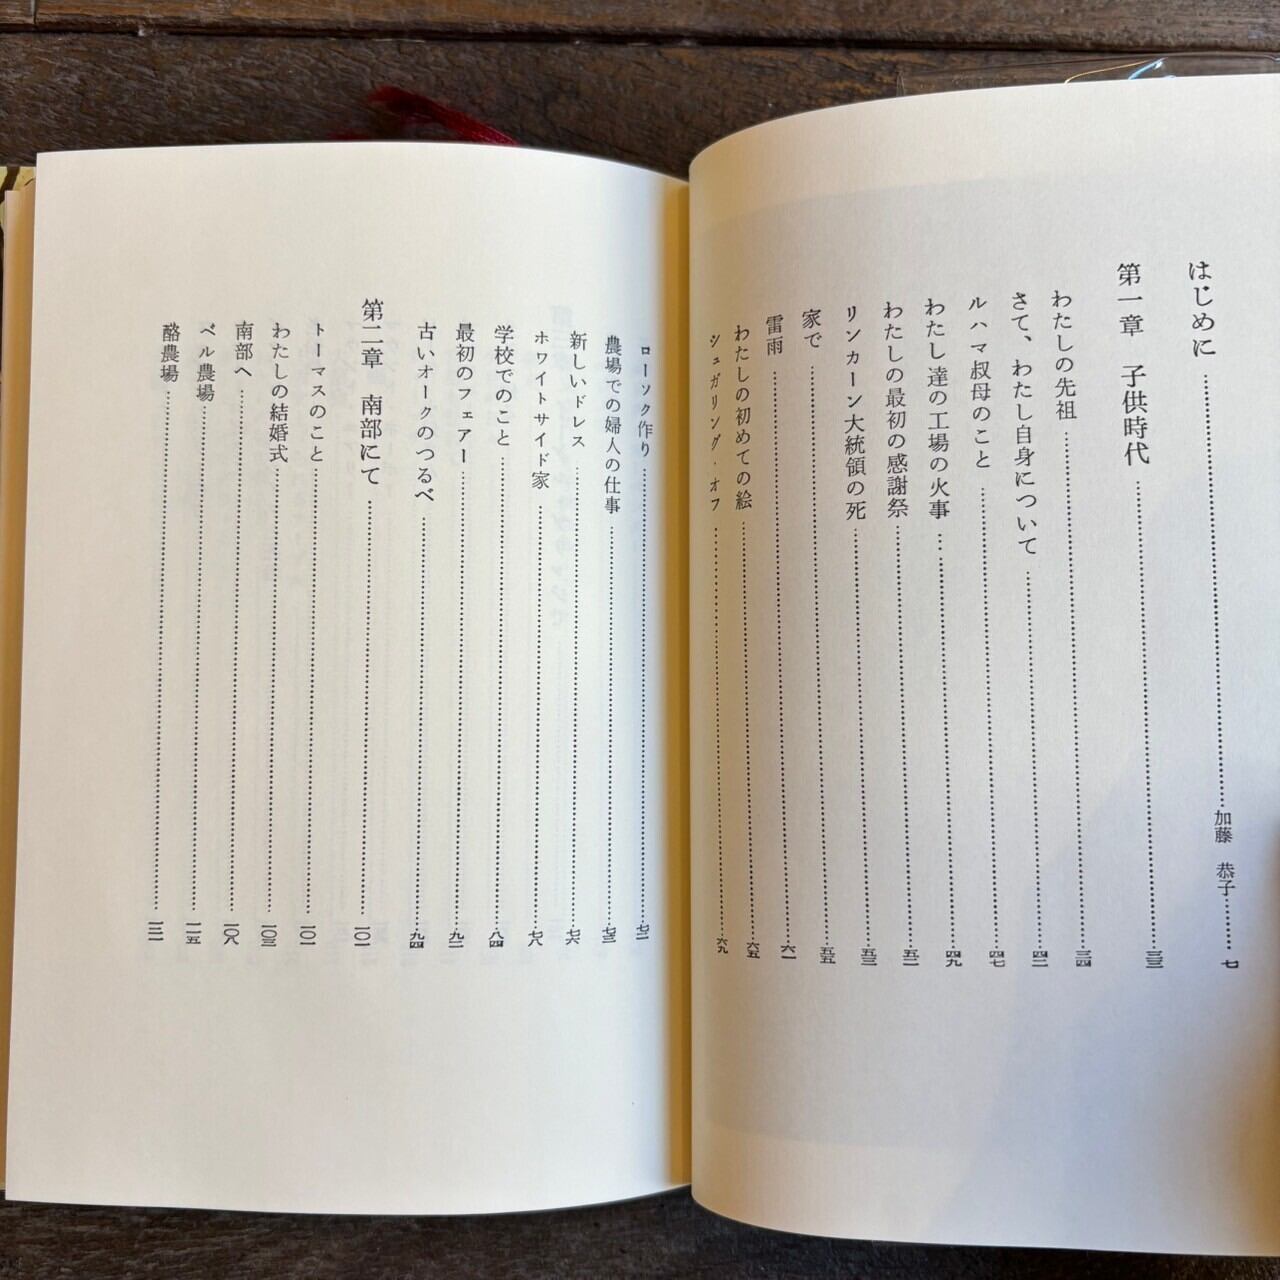 はじめに……加藤 恭子……七
第一章 子供時代……三三
わたしの先祖……三四
さて、わたし自身について……四二
ルハマ叔母のこと……四七
わたし達の工場の火事……四九
わたしの最初の感謝祭……五二
リンカーン大統領の死……五三
家で……五五
雷雨……六一
わたしの初めての絵……六五
シュガリング・オフ……六九
ローソク作り……七二
農場での婦人の仕事……七三
新しいドレス……七六
ホワイトサイド家……七八
学校でのこと……八四
最初のフェアー……九二
古いオークのつるべ……九四
第二章 南部にて……一〇一
トーマスのこと……一〇一
わたしの結婚式……一〇三
南部へ……一〇八
ベル農場……一一五
酪農場……